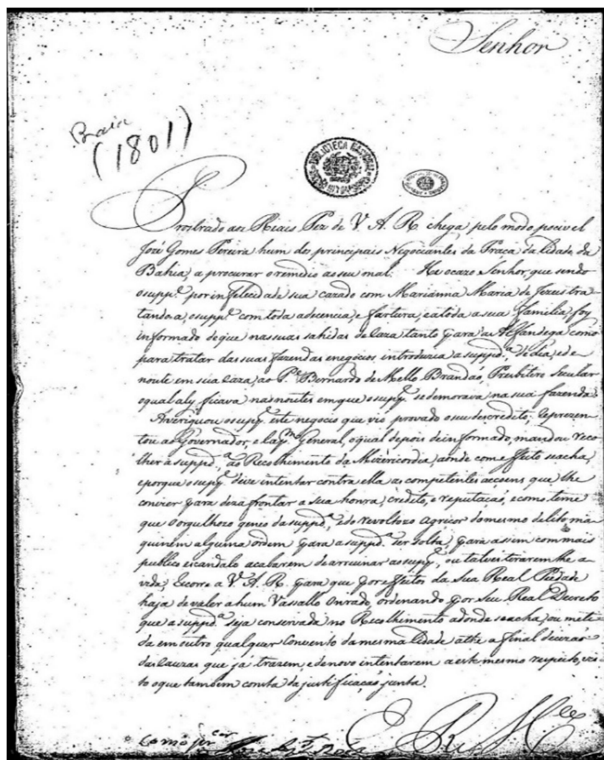 Senhor
Bahia
(1801)
BIBLIOTECA NACIONAL
Prostrado aos Reais Pez de V. A. R. chega pelo modo pocivel
José Gomes Pereira hum dos principais Negociantes da Praça da Cidade da
Bahia, a procurar o remedio ao seu mal. He o cazo Senhor, que sendo
o supp.e por infelecidade sua cazado com Marianna Maria de Jezus tra
tando a supp.da com toda a decencia, e fartura, e a toda a sua familia, foy
informado de que nas suas sahidas de Caza tanto para a Alfandega, como
para tratar das suas fazendas e negocios introduzia a supp.da de dia, e de
noute em sua Caza, ao P.e Bernardo de Mello Brandaõ, Presbitero Secular
o qual aly ficava nas noutes em que o supp.e se demorava na sua fazenda.
Averiguou o supp.e este negocio que vio provado o seu descredito, e reprezen
tou ao Governador, e Cap.m General, o qual depois de informado, mandou reco
lher a supp.da ao Recolhimento da Mizericordia, aonde com effeito se acha,
e porque o supp.e deve intentar contra ella as competentes accoens que lhe
convier para dezafrontar a sua honra, credito, e reputaçaõ, e como teme
que o orgulhozo genio da supp.da, e do revoltozo agressor do mesmo delito ma
quinem alguma ordem para a supp.da ser solta, para assim com mais
publico escandalo acabarem de arruinar ao supp.e, ou talvez tirarem-lhe a
vida; Recorre a V. A. R. para que por effeitos da Sua Real Piedade
haja de valer a hum Vassallo Onrado, ordenando por Seu Real Decreto
que a supp.da seja conservada no Recolhimento adonde se acha, ou meti
da em outro qualquer Convento da mesma Cidade athe a final decizaõ
das Cauzas que já trazem, e de novo intentarem a este mesmo respeito, vis
to o que tambem consta da justificaçaõ junta.
E. R. M.ce
Como